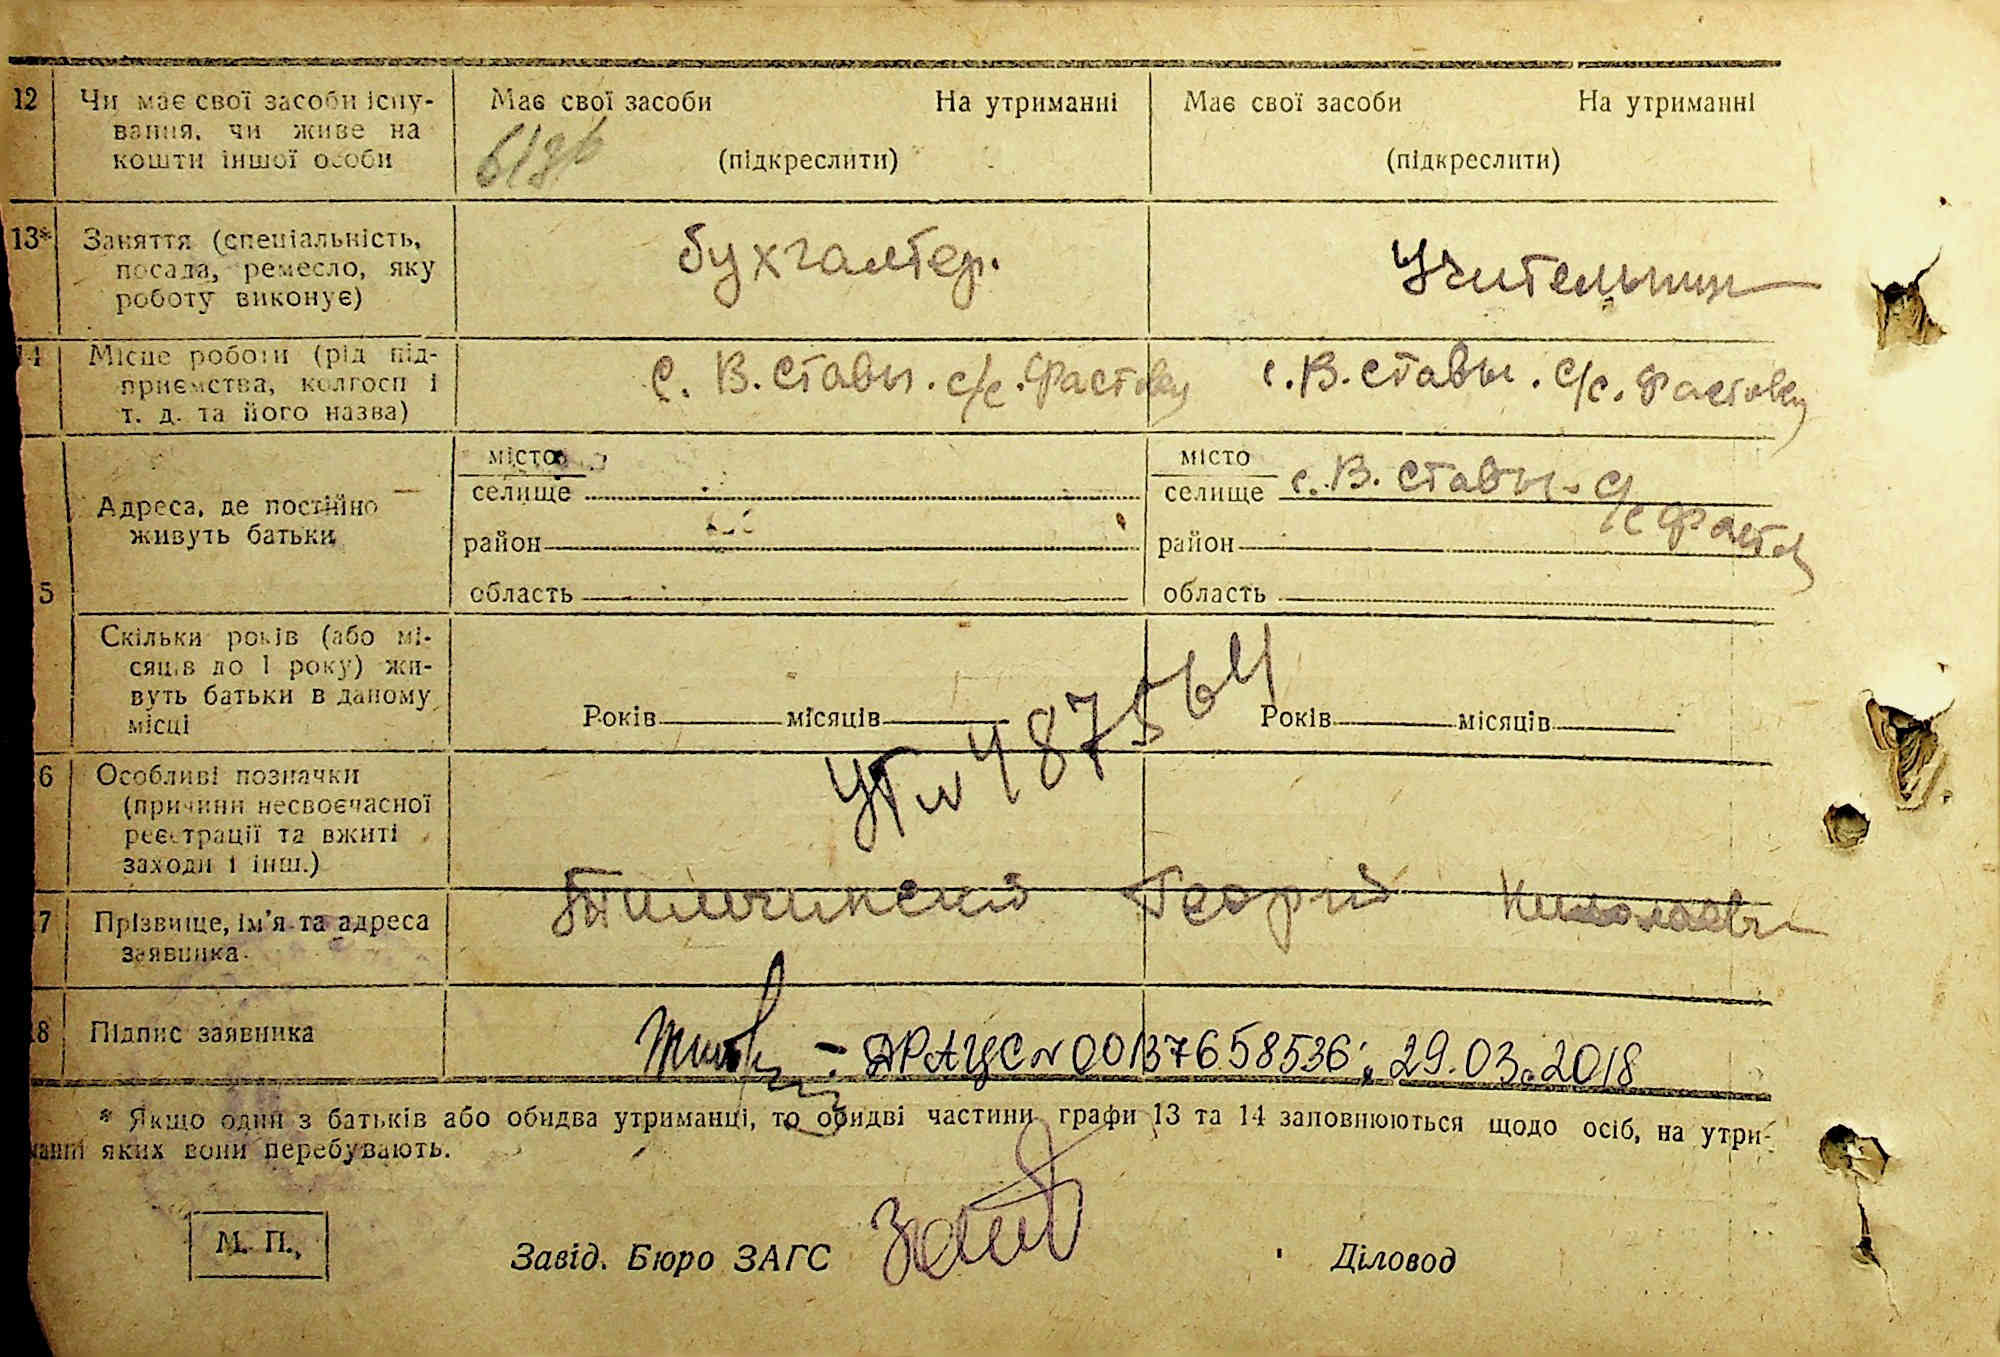 12 Чи має свої засоби існу-
вання, чи живе на
кошти іншої особи
Має свої засоби На утриманні
(підкреслити)
Має свої засоби На утриманні
(підкреслити)
13* Заняття (спеціальність,
посада, ремесло, яку
роботу виконує)
бухгалтер.
Учительниц
14 Місце роботи (рід під-
приємства, колгосп і
т. д. та його назва)
с. В. Ставы. с/с. Фастовец
с. В. Ставы. с/с. Фастовец
5 Адреса, де постійно
живуть батьки
місто
селище
район
область
місто
селище с. В. Ставы. с/
с Фастов
район
область
Скільки років (або мі-
сяців до 1 року) жи-
вуть батьки в даному
місці
Років місяців
Років місяців
УГ № 487564
6 Особливі позначки
(причини несвоєчасної
реєстрації та вжиті
заходи і інш.)
7 Прізвище, ім'я та адреса
заявника
Георгий Николаев
8 Підпис заявника
- ДРАЦС № 00137658536; 29.03.2018
* Якщо один з батьків або обидва утриманці, то обидві частини графи 13 та 14 заповнюються щодо осіб, на утри-
манні яких вони перебувають.
М. П.
Завід. Бюро ЗАГС
Діловод